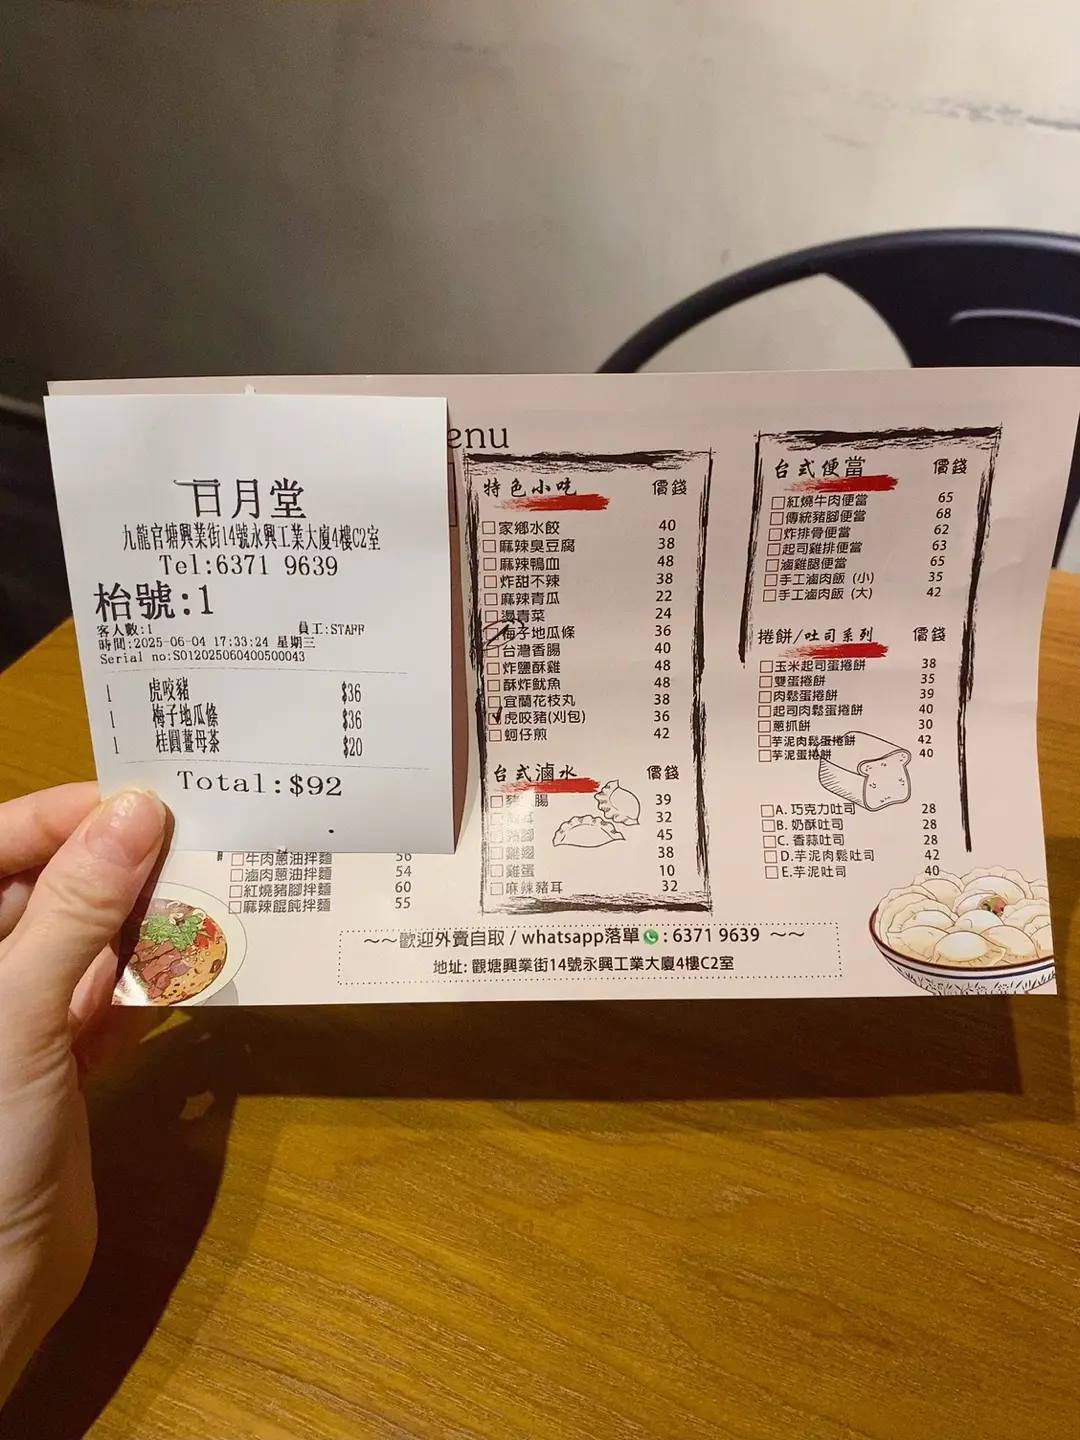 日月堂
九龍官塘興業街14號永興工業大廈4樓C2室
Tel:6371 9639
枱號:1
客人數:1 員工:STAFF
時間:2025-06-04 17:33:24 星期三
Serial no:S012025060400500043
1 虎咬豬 $36
1 梅子地瓜條 $36
1 桂圓薑母茶 $20
Total:$92
enu
牛肉蔥油拌麵 56
滷肉蔥油拌麵 54
紅燒豬腳拌麵 60
麻辣餛飩拌麵 55
特色小吃 價錢
家鄉水餃 40
麻辣臭豆腐 38
麻辣鴨血 48
炸甜不辣 38
麻辣青瓜 22
燙青菜 24
梅子地瓜條 36
台灣香腸 40
炸鹽酥雞 48
酥炸魷魚 48
宜蘭花枝丸 38
虎咬豬(刈包) 36
蚵仔煎 42
台式滷水 價錢
腸 39
耳 32
豬腳 45
雞翅 38
雞蛋 10
麻辣豬耳 32
台式便當 價錢
紅燒牛肉便當 65
傳統豬腳便當 68
炸排骨便當 62
起司雞排便當 63
滷雞腿便當 65
手工滷肉飯 (小) 35
手工滷肉飯 (大) 42
捲餅/吐司系列 價錢
玉米起司蛋捲餅 38
雙蛋捲餅 35
肉鬆蛋捲餅 39
起司肉鬆蛋捲餅 40
蔥抓餅 30
芋泥肉鬆蛋捲餅 42
芋泥蛋捲餅 40
A. 巧克力吐司 28
B. 奶酥吐司 28
C. 香蒜吐司 28
D.芋泥肉鬆吐司 42
E.芋泥吐司 40
～～歡迎外賣自取 / whatsapp落單 : 6371 9639 ～～
地址: 觀塘興業街14號永興工業大廈4樓C2室